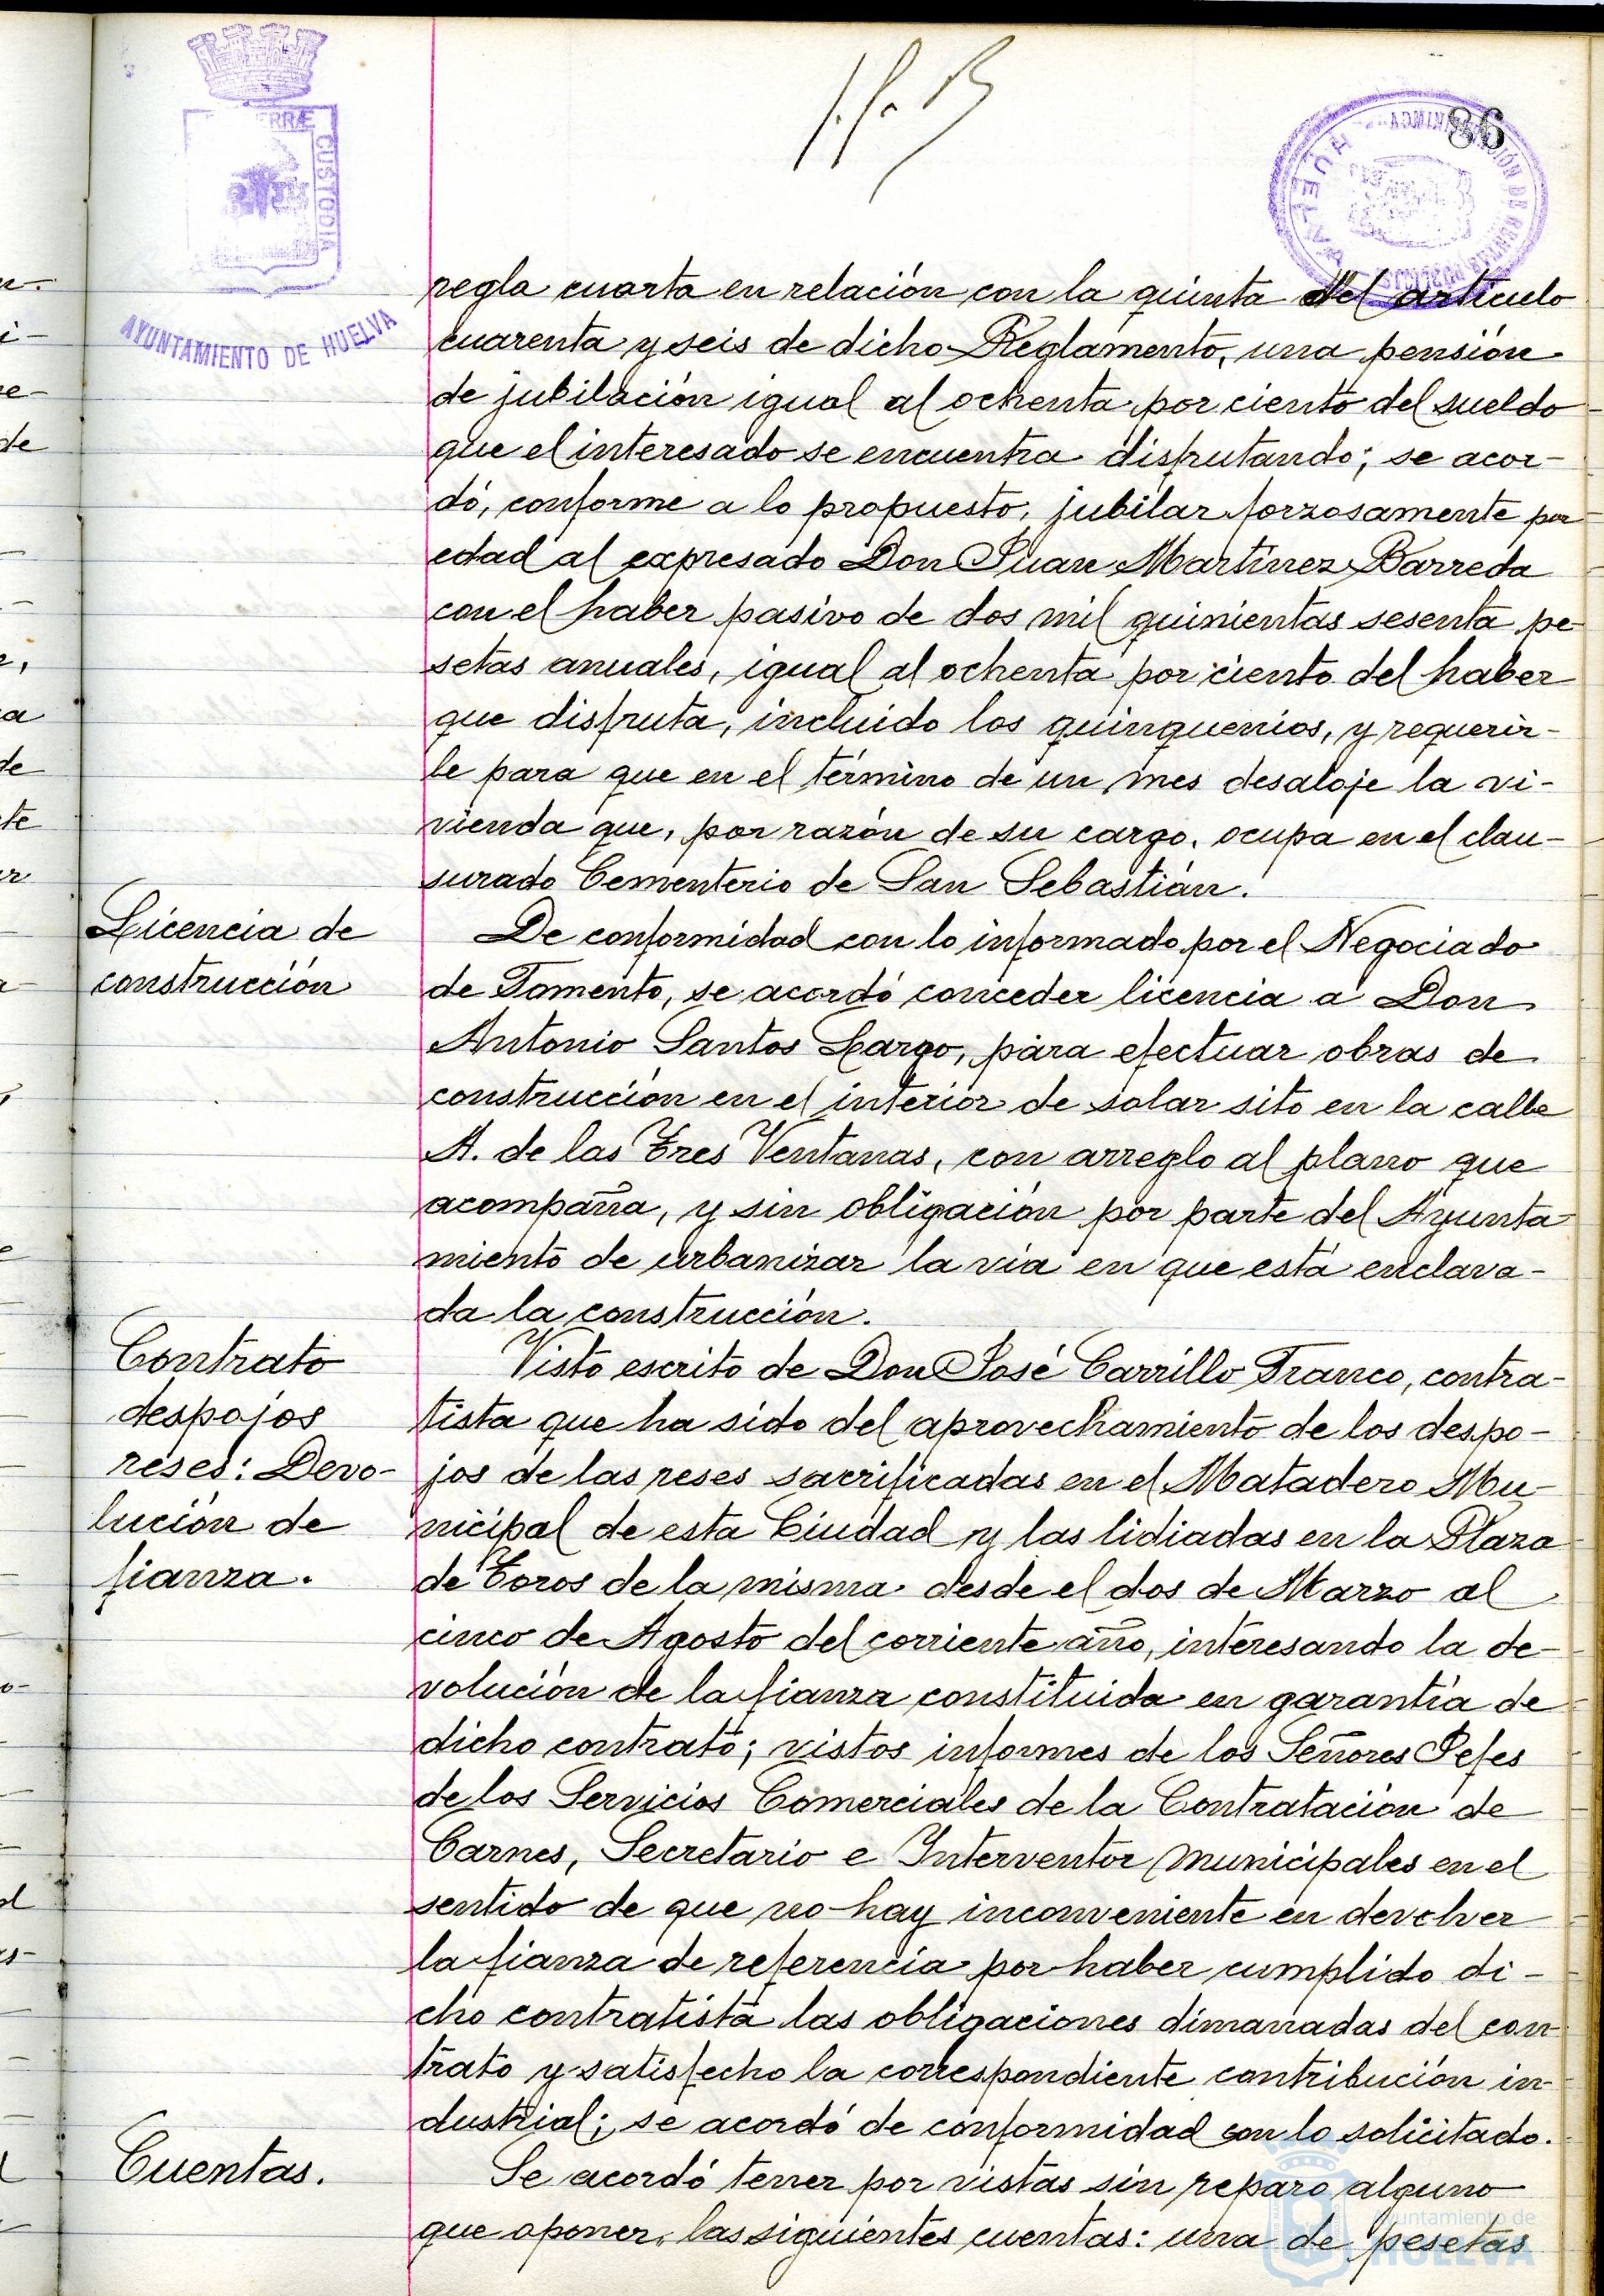 86
TERRÆ
CUSTODIA
AYUNTAMIENTO DE HUELVA
HUELVA
regla cuarta en relación con la quinta del artículo
cuarenta y seis de dicho Reglamento, una pensión
de jubilación igual al ochenta por ciento del sueldo
que el interesado se encuentra disfrutando; se acor-
dó, conforme a lo propuesto, jubilar forzosamente por
edad al expresado Don Juan Martínez Barreda
con el haber pasivo de dos mil quinientas sesenta pe-
setas anuales, igual al ochenta por ciento del haber
que disfruta, incluido los quinquenios, y requerir-
le para que en el término de un mes desaloje la vi-
vienda que, por razón de su cargo, ocupa en el clau-
surado Cementerio de San Sebastián.
Licencia de
construcción
De conformidad con lo informado por el Negociado
de Fomento, se acordó conceder licencia a Don
Antonio Santos Largo, para efectuar obras de
construcción en el interior de solar sito en la calle
A. de las Tres Ventanas, con arreglo al plano que
acompaña, y sin obligación por parte del Ayunta-
miento de urbanizar la vía en que está enclava-
da la construcción.
Contrato
despojos
reses: Devo-
lución de
fianza.
Visto escrito de Don José Carrillo Franco, contra-
tista que ha sido del aprovechamiento de los despo-
jos de las reses sacrificadas en el Matadero Mu-
nicipal de esta Ciudad y las lidiadas en la Plaza
de Toros de la misma desde el dos de Marzo al
cinco de Agosto del corriente año, interesando la de-
volución de la fianza constituida en garantía de
dicho contrato; vistos informes de los Señores Jefes
de los Servicios Comerciales de la Contratación de
Carnes, Secretario e Interventor municipales en el
sentido de que no hay inconveniente en devolver
la fianza de referencia por haber cumplido di-
cho contratista las obligaciones dimanadas del con-
trato y satisfecho la correspondiente contribución in-
dustrial; se acordó de conformidad con lo solicitado.
Cuentas.
Se acordó tener por vistas sin reparo alguno
que oponer, las siguientes cuentas: una de pesetas
Ayuntamiento de
HUELVA